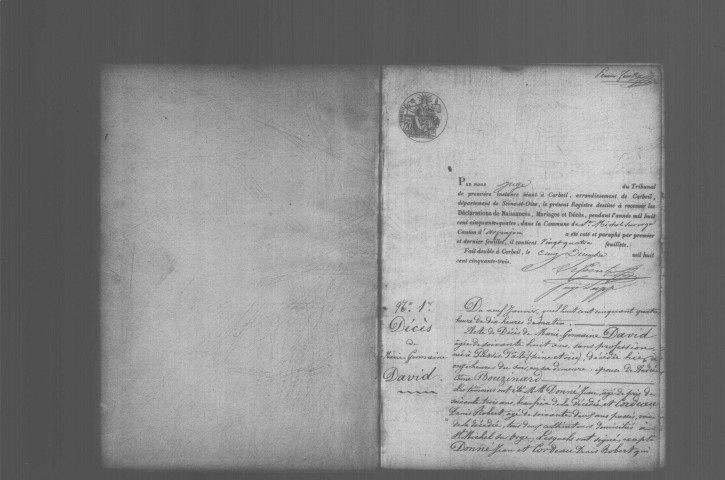 Par nous Juge du Tribunal
de première instance séant à Corbeil, arrondissement de Corbeil,
département de Seine-et-Oise, le présent Registre destiné à recevoir les
Déclarations de Naissances, Mariages et Décès, pendant l'année mil huit
cent cinquante-quatre, dans la Commune de St Michel sur orge
Canton d'Arpajon a été coté et paraphé par premier
et dernier feuillet, il contient vingt quatre feuillets.
Fait double à Corbeil, le cinq Décembre mil huit
cent cinquante-trois.
No. 1er
Décès
de
Marie Germaine
David.
Du neuf Janvier, mil huit cent cinquante quatre
heure de dix heures du matin.
Acte de Décès de Marie Germaine David
âgée de soixante huit ans, sans profession
née à (Seine et oise), décédée hier à
onze heures du soir, en sa demeure; épouse de
Bouzinard
Les témoins ont été MM. Donné Jean, âgé de près de
soixante trois ans, de la décédée, et Cordeau
Denis Robert, âgé de soixante deux ans passés, voisin
de la décédée, tous deux cultivateurs domiciliés à
St Michel sur orge, Lesquels ont signé, excepté
Donné Jean et Cordeau Denis Robert qui